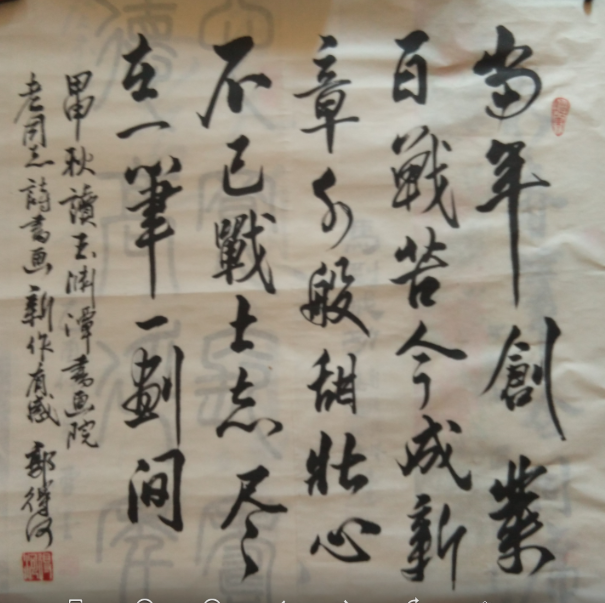 當年創業
百戰苦今成新
章万般甜壯心
不已戰士志尽
在一筆一劃间
甲申秋讀玉渊潭書画院
老同志詩書画新作有感 郭